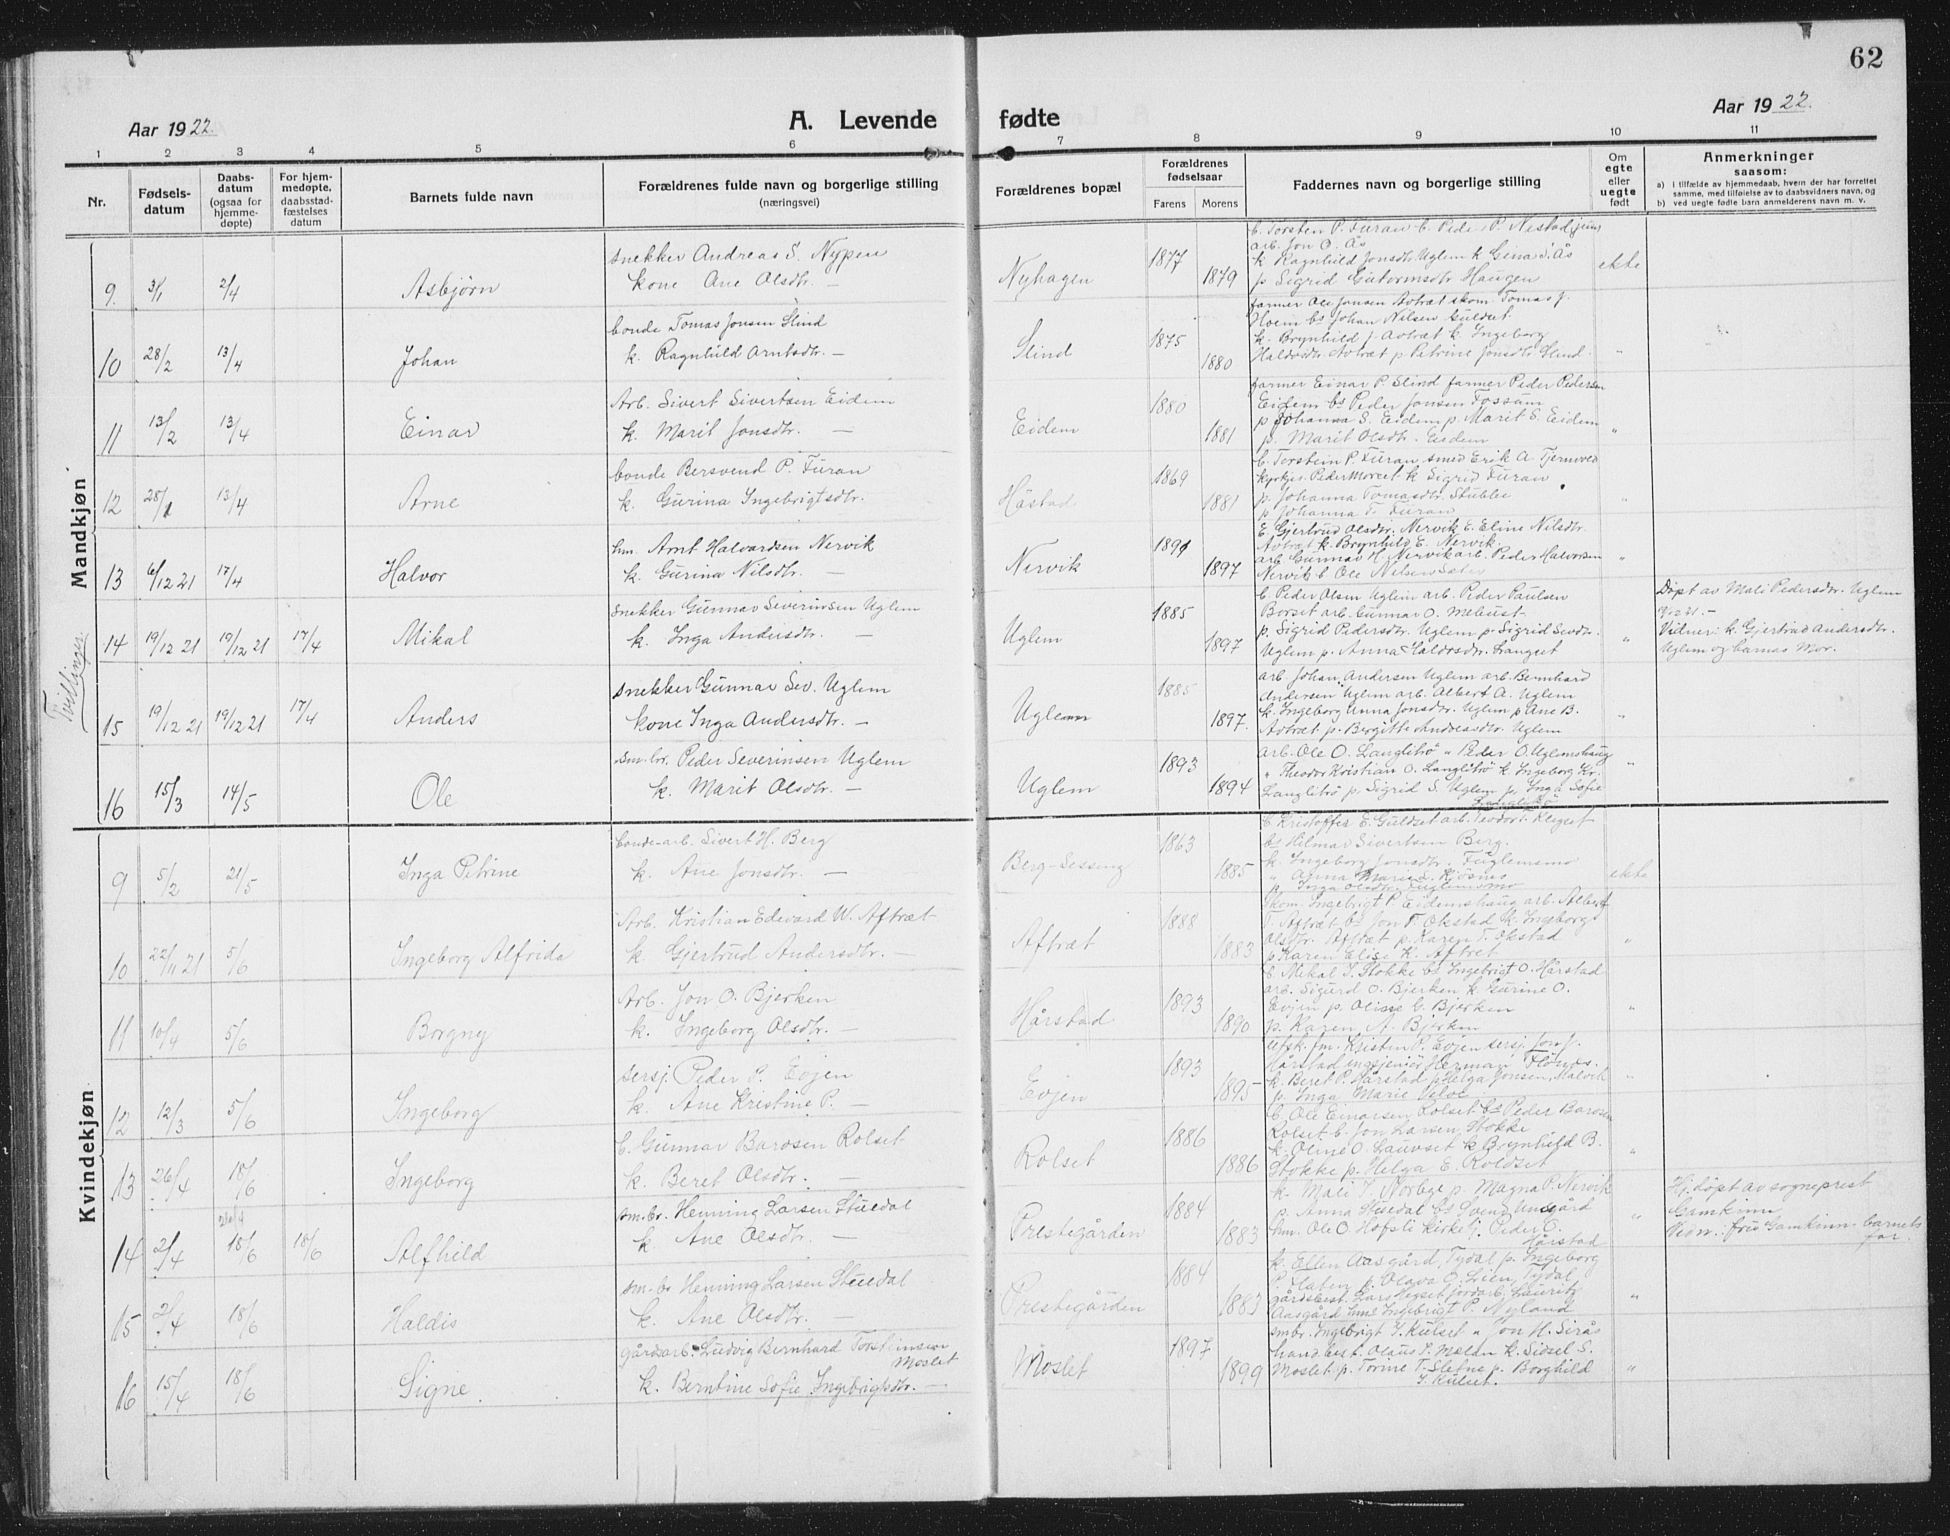 62
Aar 1922.
A. Levende fødte
Aar 1922.
1 2 3 4 5 6 7 8 9 10 11
Nr.
Fødsels-
datum
Daabs-
datum
(ogsaa for
hjemme-
døpte)
For hjem-
medøpte,
daabsstad-
fæstelses
datum
Barnets fulde navn
Forældrenes fulde navn og borgerlige stilling
(næringsvei)
Forældrenes bopæl
Forældrenes
fødselsaar
Farens Morens
Faddernes navn og borgerlige stilling
Om
egte
eller
uegte
født
Anmerkninger
saasom:
a) I tilfælde av hjemmedaab, hvem der har forrettet
samme, med tilføielse av to daabsvidners navn, og
b) ved uegte fødte barn anmelderens navn m. v.
Mandkjøn
9. 3/1 2/4 Asbjørn
snekker Andreas S. Nypen
kone Ane Olsdtr. —
Nyhagen 1877 1879
b. Torsten P. Furan b. Peder P. Nestadgjem
arb. Jon O. Ås
k Ragnhild Jonsdtr Uglem k Gina S. Ås
p Sigrid Gutormsdtr Haugen
ekte
10 28/2 13/4 Johan
bonde Tomas Jonsen Slind
k. Ragnhild Arntsdtr. —
Slind 1875 1880
farmer Ole Jonsen Avtræt skom. Tomas J.
Hoem bs Johan Nilsen Guldset
k. Brynhild J. Avtræt k. Ingeborg
Haldosdtr. Avtræt p Petrine Jonsdtr Slind.
"
11 13/2 13/4 Einar
Arb. Sivert Sivertsen Eidem
k. Marit Jonsdtr. —
Eidem 1880 1881
farmer Einar P. Slind farmer Peder Pedersen
Eidem bs Peder Jonsen Fossum
p Johanna S. Eidem p. Marit S. Eidem
p. Marit Olsdtr. Eidem
"
12 28/1 13/4 Arne
bonde Bersvend P. Furan
k. Gurina Ingebrigtsdtr.
Håstad 1869 1881
b. Torstein P. Furan smed Erik A. Tjernved
kjøkjer Peder Morset k Sigrid Furan
p. Johanna Tomasdtr. Stublei
p Johanna T. Furan
"
13 6/12 21 17/4 Halvor
hm. Arnt Halvardsen Nervik
k. Gurina Nilsdtr. —
Nervik 1891 1897
E Gjertrud Olsdtr. Nervik E. Eline Nilsdtr.
Avtræt k. Brynhild E. Nervik.
arb. Gunnar H. Nervik arb. Peder Halvorsen
Nervik b Ole Nilsen
"
Tvillinger
14 19/12 21 19/12 21 17/4 Mikal
snekker Gunnar Severinsen Uglem
k. Inga Andersdtr. —
Uglem 1885 1897
b Peder Olsen Uglem arb. Peder Paulsen
Borset arb. Gunnar O. Mebust.
p. Sigrid Pedersdtr. Uglem p Sigrid Sevdtr.
Uglem p. Anna Haldorsdtr. Langset
"
Døpt av Mali Pedersdtr. Uglem
Vitner: k. Gjertrud Andersdtr.
Uglem og barnas Mor.
15 19/12 21 19/12 21 17/4 Anders
snekker Gunnar Sev. Uglem
kone Inga Andersdtr. —
Uglem 1885 1897.
arb. Johan Andersen Uglem arb. Bernhard
Andersen Uglem arb. Albert A. Uglem
k. Ingeborg Anna Jonsdtr. Uglem p Ane B.
Avtræt p. Birgitte Andreasdtr. Uglem
"
16 15/3 14/5 Ole
sm.br. Peder Severinsen Uglem
k. Marit Olsdtr. —
Uglem 1893 1894
arb. Ole O. Langlitrø " Peder O. Uglemshaug
" Theodor Kristian O. Langlitrø k Ingeborg Kr.
Langlitrø p Sigrid S. Uglem p. Inga Sofie
Langlitrø
"
Kvindekjøn
9 5/2 21/5 Inga Petrine
bonde-arb. Sivert H. Berg
k. Ane Jonsdtr. —
Berg-Sessing 1863 1885
b Kristoffer E. Guldset arb. Teodor T. Kleset
bs Helmar Sivertsen Berg.
k. Ingeborg Jonsdtr. Fuglemsmo
" Anna Marie L. Kjøsnes
p. Inga Olsdtr. Fuglemsmo
ekte
10 22/11 21 5/6 Ingeborg Alfrida
Arb. Kristian Edevard W. Aftræt
k. Gjertrud Andersdtr. —
Aftræt 1888 1883
Skom. Ingebrigt P. Eidemshaug arb. Albert
T. Aftræt bs Jon T. Okstad k. Ingeborg
Olsdtr. Aftræt p. Karen T. Okstad
p Karen Elise K. Aftret
"
11 10/4 5/6 Borgny
Arb. Jon O. Bjerken
k. Ingeborg Olsdtr. —
Hårstad 1893 1890
b. Mikal T. Stokke bs Ingebrigt O. Hårstad
arb. Sigurd O. Bjerken k. Gurine O.
Evjen p. Olisse G. Bjerken
p. Karen A. Bjerken
"
12 12/3 5/6 Ingeborg
Sersj. Peder P. Evjen
k. Ane Kristine P. —
Evjen 1893 1895
ufsk. fm. Kristen P. Evjen sersj. Jon J.
Hårstad ingsjeniør Herman Flønes.
k. Beret P. Hårstad p Helga Jonsen, Malvik
p. Inga Marie Velve
"
13 26/4 18/6 Ingeborg
b. Gunnar Barosen Rolset
k. Beret Olsdtr. —
Rolset 1886 1886
b. Ole Einarsen Rolset bs Peder Barosen
Rolset b. Jon Larsen Stokke
k. Oline O. Lauvset k Brynhild B.
Stokke p. Helga E. Roldset
"
14 2/4 26/4 18/6 18/6 Alfhild
sm.br. Henning Larsen Stuedal
k Ane Olsdtr. —
Prestegården 1884 1883
k. Mali T. Norbye p. Magna P. Nervik
p. Anna Stuedal bs Svend Aasgård
hm. Ole O Hofsli kirketj. Peder C.
Hårstad
"
Hj. døpt av sogneprest
Gamkinn
Vidn.: fru Gamkinn. barnets
far.
15 2/4 18/6 Haldis
sm.br Henning Larsen Stuedal
k. Ane Olsdtr. —
Prestegården 1884 1883
k. Ellen Aasgård, Tydal p. Ingeborg
P. Slaten p. Olava O. Lien, Tydal,
gårdsbest. Lars Vegset jordarb. Lauritz
Aasgård hm. Ingebrigt P. Nyland
"
16 15/4 18/6 Signe
gårdarb. Ludvig Bernhard Torsteinsen
Moslet
k. Berntine Sofie Ingebrigtsdtr. —
Moslet 1897 1899
smbr. Ingebrigt J. Kulset " Jon H. Sirås
handbest. Olaus P. Melan k. Sidsel S.
Moslet p. Torine T. Sletne p. Borghild
J. Kulset.
"